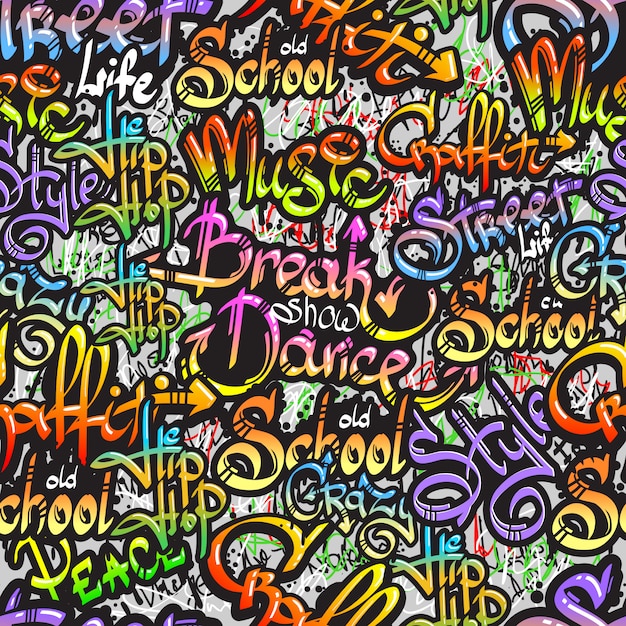 Street
Life
old
School
Graffiti
Music
Music
Graffiti
Style
Hip
Hop
Street
Life
Break
show
Dance
Crazy
Crazy
Hip
Hop
School
Graffiti
old
School
Style
Hip
Hop
old
School
Crazy
Peace
Hip
Hop